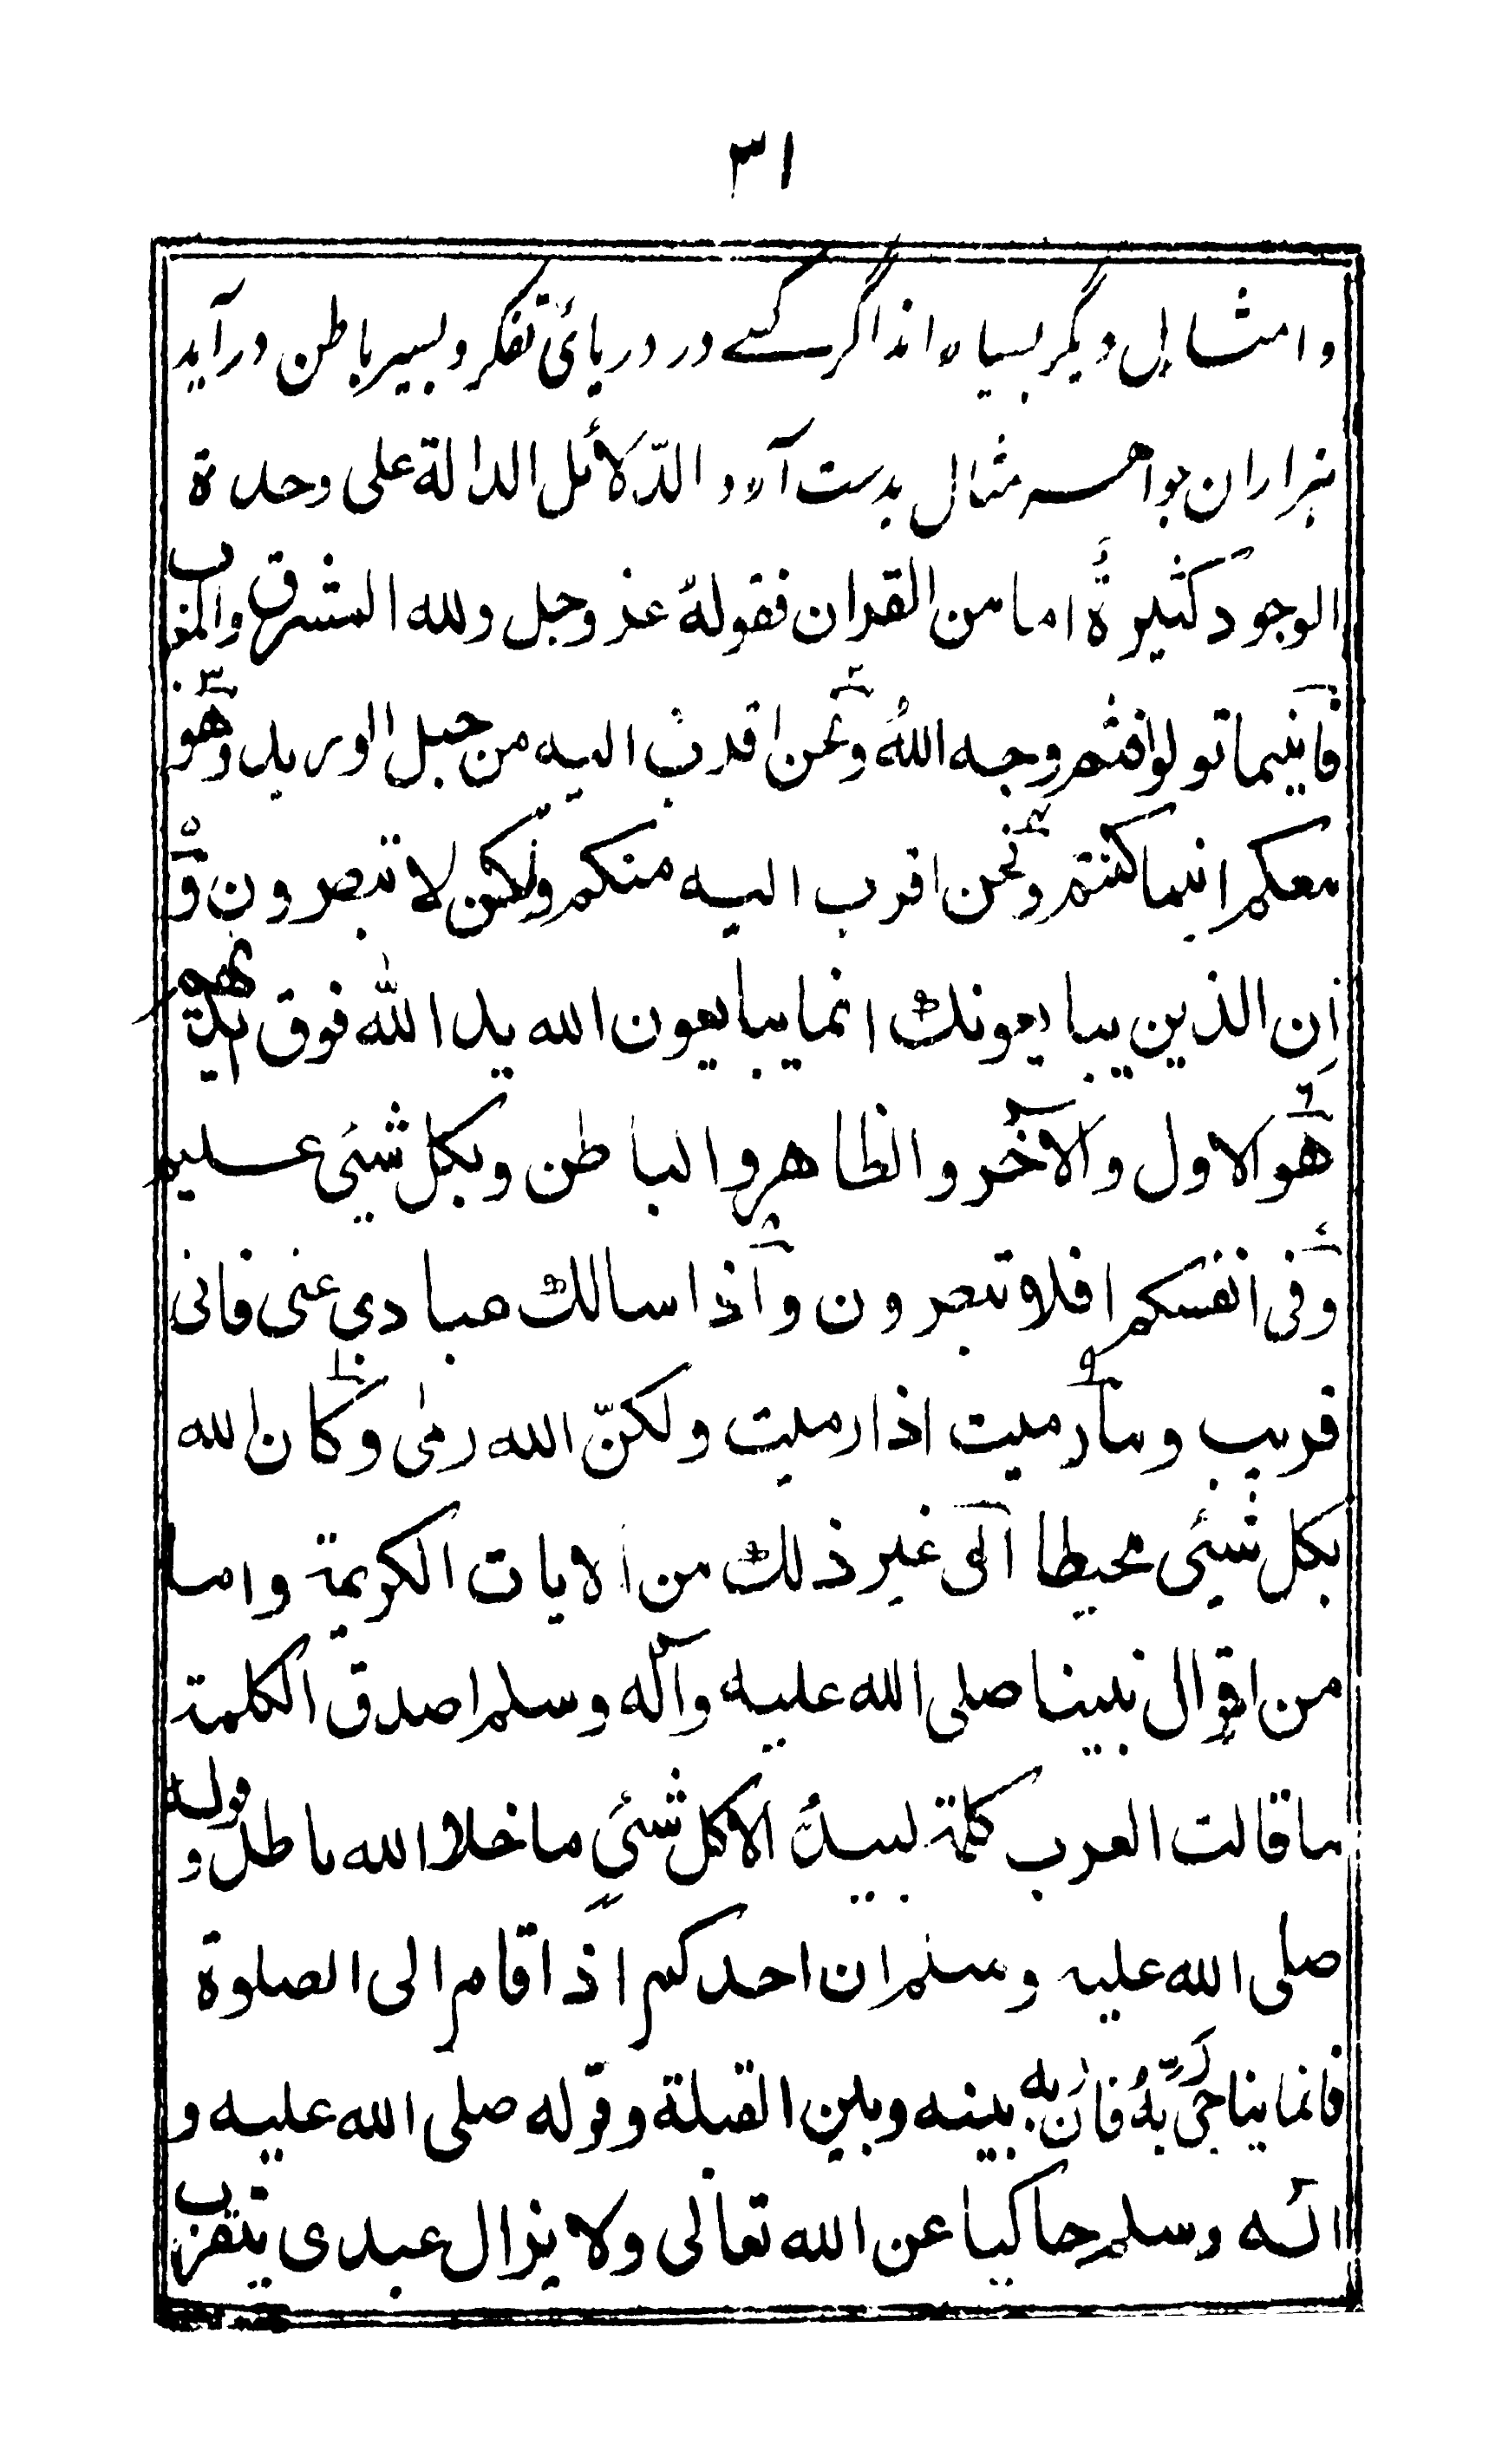 ۳۱
و امثالی دیگر بسیاه اند اگر کسے در دریائ تفکر و بسیر باطن در آید
ہزاران جواہر مثال بدست آرد الدّلائل الدالة على وحدة
الوجود كثيرةٌ اما من القران فقولهٗ عز وجل ولله المشرق والمغرب
فاينما تولوا فثم وجه اللهُ ونحن اقرب اليه من حبل الوريد وهو
معكم اينما كنتم ونحن اقرب اليه منكم ولكن لا تبصرون و
اِن الذين يبايعونك انما يبايعون الله يد الله فوق ايديهم
هو الاول والآخر والظاهر والباطن وبكل شئی عليم
وفى انفسكم افلا تبصرون واذا سالك عبادي عنى فانى
قريب وما رميت اذ رميت ولكنّ الله رمٰى وكان الله
بكل شئی محيطا الى غير ذلك من الايات الكريمة واما
من اقوال نبينا صلى الله عليه وآله وسلم اصدق الكلمة
ما قالت العرب كلمة لبيدٌ الا كل شئیٍ ما خلا الله باطل و قوله
صلى الله عليه وسلم ان احدكم اذا قام الى الصلوة
فانما يناجى رَبّهٗ فان ربه بينه وبين القبلة وقوله صلى الله عليه و
اٰله وسلم حاكيا عن الله تعالى ولا يزال عبدى يتقرب